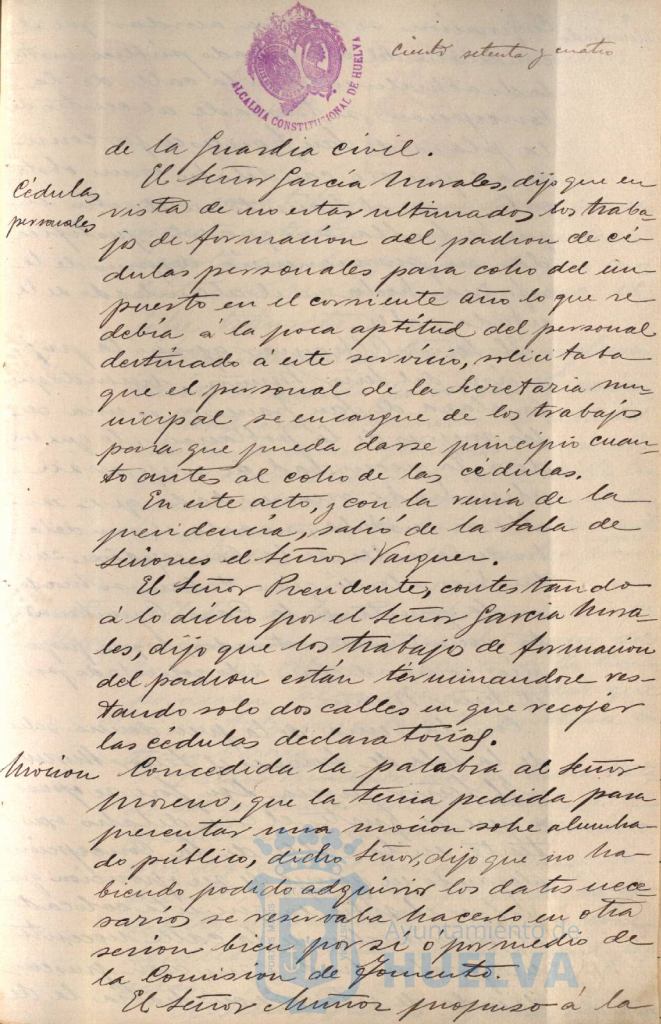 ALCALDIA CONSTITUCIONAL DE HUELVA
ciento setenta y cuatro
de la Guardia civil.
Cédulas personales
El Señor García Morales, dijo que en
vista de no estar ultimados los traba-
jos de formación del padron de cé-
dulas personales para cobro del im-
puesto en el corriente año lo que se
debía á la poca aptitud del personal
destinado á este servicio, solicitaba
que el personal de la Secretaria mu-
nicipal se encargue de los trabajos
para que pueda darse principio cuan-
to antes al cobro de las cédulas.
En este acto, y con la venia de la
presidencia, salió de la Sala de
Sesiones el Señor Vazquez.
El Señor Presidente, contestando
á lo dicho por el Señor Garcia Mora-
les, dijo que los trabajos de formacion
del padron están términandose res-
tando solo dos calles en que recojer
las cédulas declaratorias.
Mocion
Concedida la palabra al Señor
Moreno, que la tenia pedida para
presentar una mocion sobre alumbra-
do público, dicho Señor, dijo que no ha-
biendo podido adquirir los datos nece-
sarios se reservaba hacerlo en otra
sesion bien por sí o por medio de
la Comision de Fomento.
El Señor Muñoz propuso á la
Ayuntamiento de
HUELVA